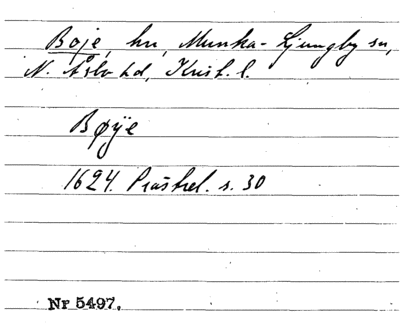 Boje, hn, Munka-Ljungby sn,
N. Åsbo hd, Krist. l.
Bøÿe
1624. Prästrel. s. 30
Nr 5497.